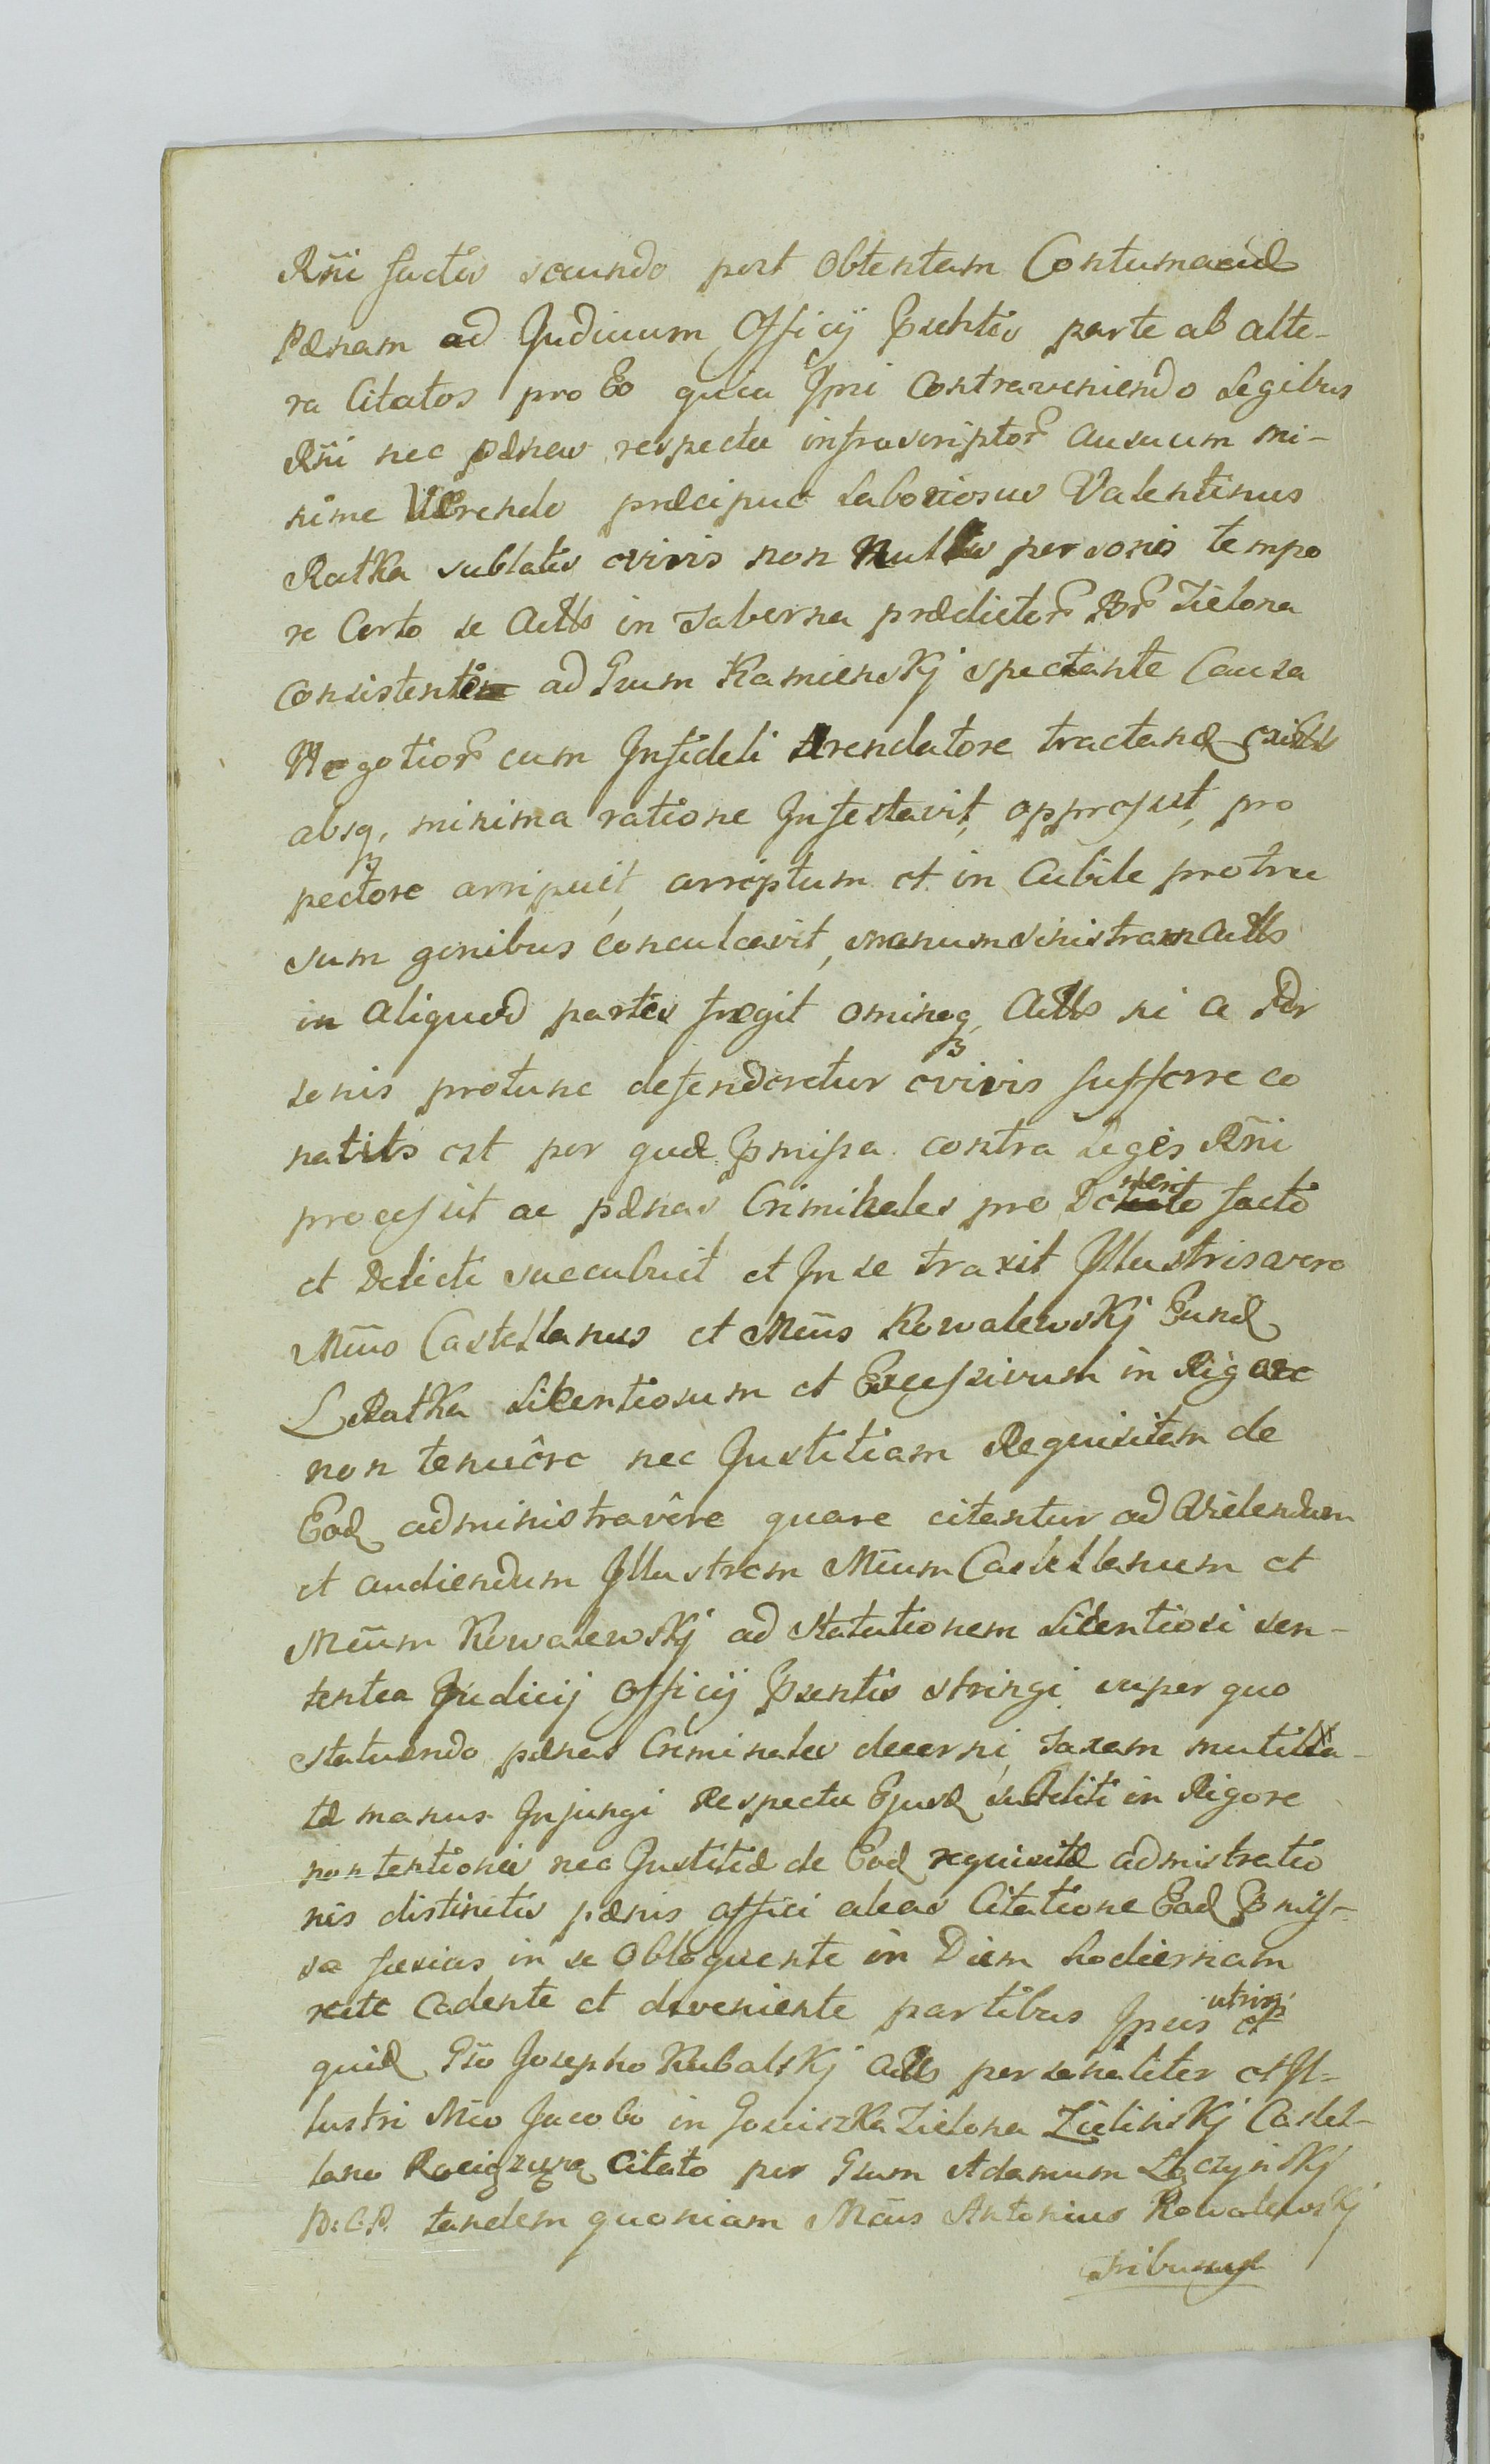 Rñi factis secundo post obtentam Contumaciæ
Pænam ad Judicium Officij Psentis parte ab alte-
ra Citatos pro Eo quia Ipsi Contraveniendo Legibus
Rñi nec pænas respectu infrascriptor ausuum mi-
nime Verendo præcipue Laboriosus Valentinus
Ratka sublatis e vivis non Nullis personis tempo
re Certo se Actts in Taberna prædictor Bor Zielona
Consistenti ad Gsum Kamienskj spectante Causa
Negotior cum Infideli Arendatore tractand
absq, minima ratione Infestavit, oppressit, pro
pectore arripuit, arreptum et in Cubile protru
sum genibus conculcavit, manum sinistram Actts
in aliquod partes fregit omineq, Actts ni a Per
sonis protunc defenderetur e vivis sufferre co
natus est per quæ Pmissa contra Leges Rñi
processit ac pænas Criminales pro Demerito facto
et Delicti succubuit et In se traxit Illustris vero
Mñus Castellanus et Mñus Kowalewskj Eund
L Ratka Licentiosum et Excessivum in Rigore
non tenuêre nec Justitiam Requisitam de
Eod administravêre quare citantur ad Videndum
et audiendum Illustrem Mñum Castellanum et
Mñum Kowalewskj ad Statutionem Licentiosi sen-
tentia Judicij Officij Psentis stringi super quo
statuendo pænas Criminales decerni, Taxam mutilla-
tæ manus Injungi Respectu Ejusd subditi in Rigore
non tentionis nec Justitiæ de Eod requisitæ admistratio
nis distinctis pænis affici aleas Citatione Ead Pmis-
sa fusius in se Obloquente in Diem hodiernam
recte Cadente et deveniente partibus Ipsis utrinq
quid Gso Josepho Kubalskj Actts personaliter et Il-
lustri Mñco Jacobo in Gouiszka Zielona Zielinskj Castel-
lano Raciązsens Citato per Gsum Adamum Łączynskj
P: C: P. tandem quoniam Mñus Antonius Kowalewskj
Tribunus